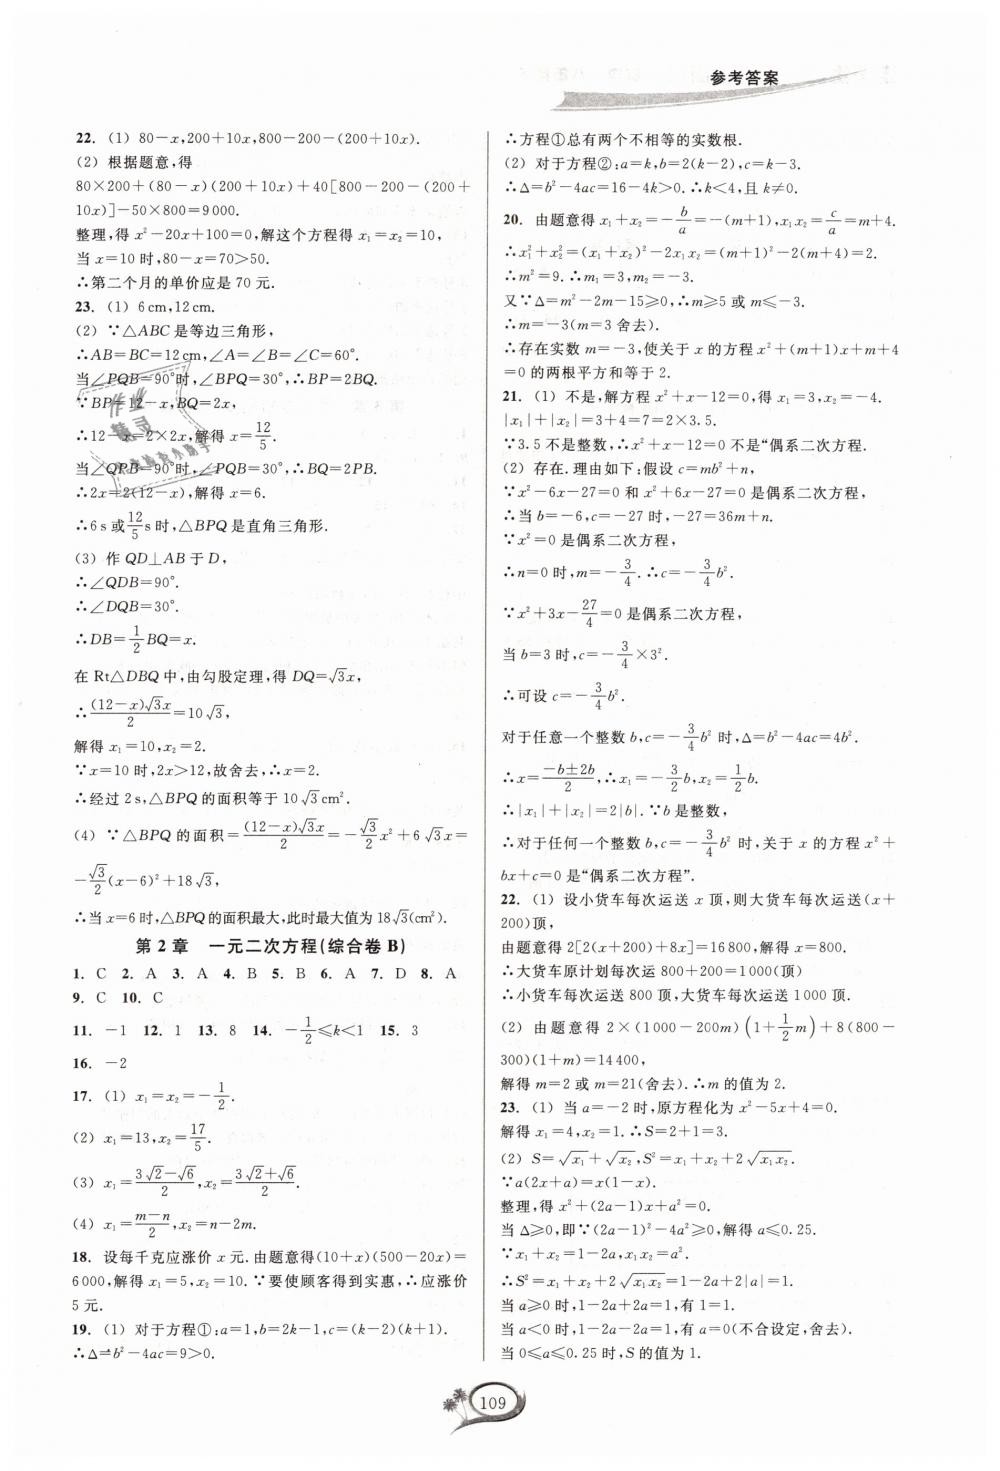 参考答案
22. (1) 80－x,200＋10x,800－200－(200＋10x).
(2) 根据题意,得
80×200＋(80－x)(200＋10x)＋40[800－200－(200＋
10x)]－50×800＝9000.
整理,得 x²－20x＋100＝0,解这个方程得 x₁＝x₂＝10,
当 x＝10 时,80－x＝70＞50.
∴第二个月的单价应是 70 元.
23. (1) 6cm,12cm.
(2) ∵△ABC 是等边三角形,
∴AB＝BC＝12cm,∠A＝∠B＝∠C＝60°.
当∠PQB＝90°时,∠BPQ＝30°,∴BP＝2BQ.
∵BP＝12－x,BQ＝2x,
∴12－x＝2×2x,解得 x＝12/5.
当∠QPB＝90°时,∠PQB＝30°,∴BQ＝2PB.
∴2x＝2(12－x),解得 x＝6.
∴6s 或 12/5 s 时,△BPQ 是直角三角形.
(3) 作 QD⊥AB 于 D,
∴∠QDB＝90°.
∴∠DQB＝30°.
∴DB＝1/2 BQ＝x.
在 Rt△DBQ 中,由勾股定理,得 DQ＝√3x,
∴(12－x)√3x/2＝10√3,
解得 x₁＝10,x₂＝2.
∵x＝10 时,2x＞12,故舍去,∴x＝2.
∴经过 2s,△BPQ 的面积等于 10√3cm².
(4) ∵△BPQ 的面积＝(12－x)√3x/2＝－√3/2 x²＋6√3x＝
－√3/2(x－6)²＋18√3,
∴当 x＝6 时,△BPQ 的面积最大,此时最大值为 18√3(cm²).
第 2 章 一元二次方程(综合卷 B)
1. C 2. A 3. A 4. B 5. B 6. A 7. D 8. A
9. C 10. C
11. －1 12. 1 13. 8 14. －1/2≤k＜1 15. 3
16. －2
17. (1) x₁＝x₂＝－1/2.
(2) x₁＝13,x₂＝17/5.
(3) x₁＝(3√2－√6)/2,x₂＝(3√2＋√6)/2.
(4) x₁＝(m－n)/2,x₂＝n－2m.
18. 设每千克应涨价 x 元.由题意得(10＋x)(500－20x)＝
6000,解得 x₁＝5,x₂＝10.∵要使顾客得到实惠,∴应涨价
5 元.
19. (1) 对于方程①:a＝1,b＝2k－1,c＝(k－2)(k＋1).
∴Δ＝b²－4ac＝9＞0.
∴方程①总有两个不相等的实数根.
(2) 对于方程②:a＝k,b＝2(k－2),c＝k－3.
∴Δ＝b²－4ac＝16－4k＞0.∴k＜4,且 k≠0.
20. 由题意得 x₁＋x₂＝－b/a＝－(m＋1),x₁x₂＝c/a＝m＋4.
∴x₁²＋x₂²＝(x₁＋x₂)²－2x₁x₂＝(m＋1)²－2(m＋4)＝2.
∴m²＝9.∴m₁＝3,m₂＝－3.
又∵Δ＝m²－2m－15≥0,∴m≥5 或 m≤－3.
∴m＝－3(m＝3 舍去).
∴存在实数 m＝－3,使关于 x 的方程 x²＋(m＋1)x＋m＋4
＝0 的两根平方和等于 2.
21. (1) 不是,解方程 x²＋x－12＝0,得 x₁＝3,x₂＝－4.
|x₁|＋|x₂|＝3＋4＝7＝2×3.5.
∵3.5 不是整数,∴x²＋x－12＝0 不是“偶系二次方程.
(2) 存在.理由如下:假设 c＝mb²＋n,
∵x²－6x－27＝0 和 x²＋6x－27＝0 是偶系二次方程,
∴当 b＝－6,c＝－27 时,－27＝36m＋n.
∵x²＝0 是偶系二次方程,
∴n＝0 时,m＝－3/4.∴c＝－3/4 b².
∵x²＋3x－27/4＝0 是偶系二次方程,
当 b＝3 时,c＝－3/4×3².
∴可设 c＝－3/4 b².
对于任意一个整数 b,c＝－3/4 b² 时,Δ＝b²－4ac＝4b².
∴x＝(－b±2b)/2,∴x₁＝－3/2 b,x₂＝1/2 b.
∴|x₁|＋|x₂|＝2|b|.∵b 是整数,
∴对于任何一个整数 b,c＝－3/4 b² 时,关于 x 的方程 x²＋
bx＋c＝0 是“偶系二次方程”.
22. (1) 设小货车每次运送 x 顶,则大货车每次运送(x＋
200)顶,
由题意得 2[2(x＋200)＋8x]＝16800,解得 x＝800.
∴大货车原计划每次运 800＋200＝1000(顶)
∴小货车每次运送 800 顶,大货车每次运送 1000 顶.
(2) 由题意得 2×(1000－200m)(1＋1/2 m)＋8(800－
300)(1＋m)＝14400,
解得 m＝2 或 m＝21(舍去).∴m 的值为 2.
23. (1) 当 a＝－2 时,原方程化为 x²－5x＋4＝0.
解得 x₁＝4,x₂＝1.∴S＝2＋1＝3.
(2) S＝√x₁＋√x₂,S²＝x₁＋x₂＋2√x₁x₂.
∵a(2x＋a)＝x(1－x).
整理,得 x²＋(2a－1)x＋a²＝0.
当 Δ≥0,即∵(2a－1)²－4a²≥0,解得 a≤0.25.
∵x₁＋x₂＝1－2a,x₁x₂＝a².
∴S²＝x₁＋x₂＋2√x₁x₂＝1－2a＋2|a|＝1.
当 a≥0 时,1－2a＋2a＝1,有 1＝1.
当 a＜0 时,1－2a－2a＝1,有 a＝0(不合设定,舍去).
当 0≤a≤0.25 时,S 的值为 1.
109